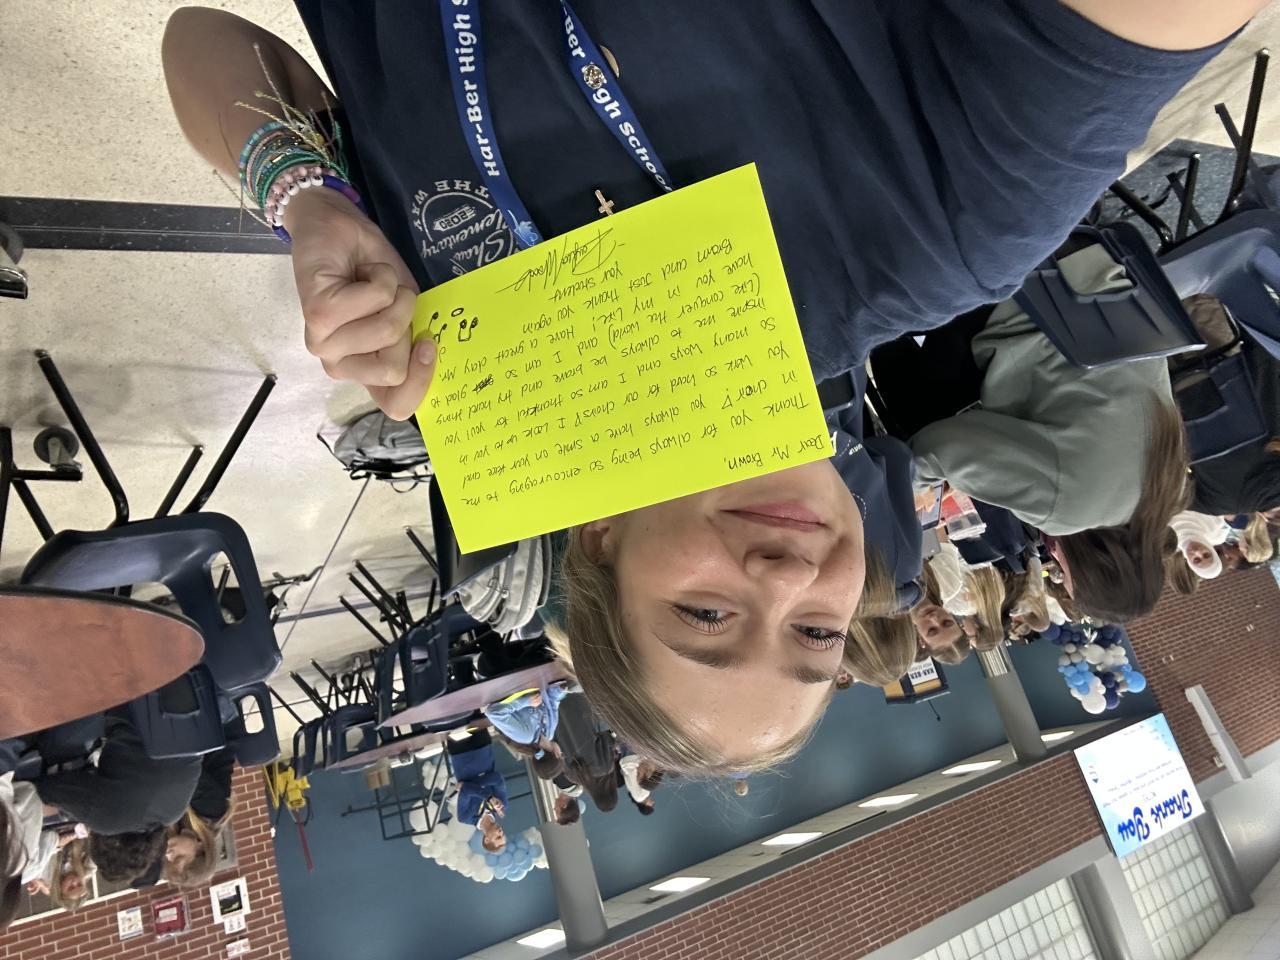 Har-Ber High S
-Ber High School
Shaw
Elementary
2020
THE WAY
Dear Mr Brown,
Thank you for always being so encouraging to me
in choir! You always have a smile on your face and
You work so hard for our choirs! I Look up to you in
So many ways and I am so thankful for you! You
inspire me to always be brave and try hard things
(Like conquer the world) and I am so glad to
have you in my Life! Have a great day Mr.
Brown and Just thank you again
Your student
HAR-BER
Thank You